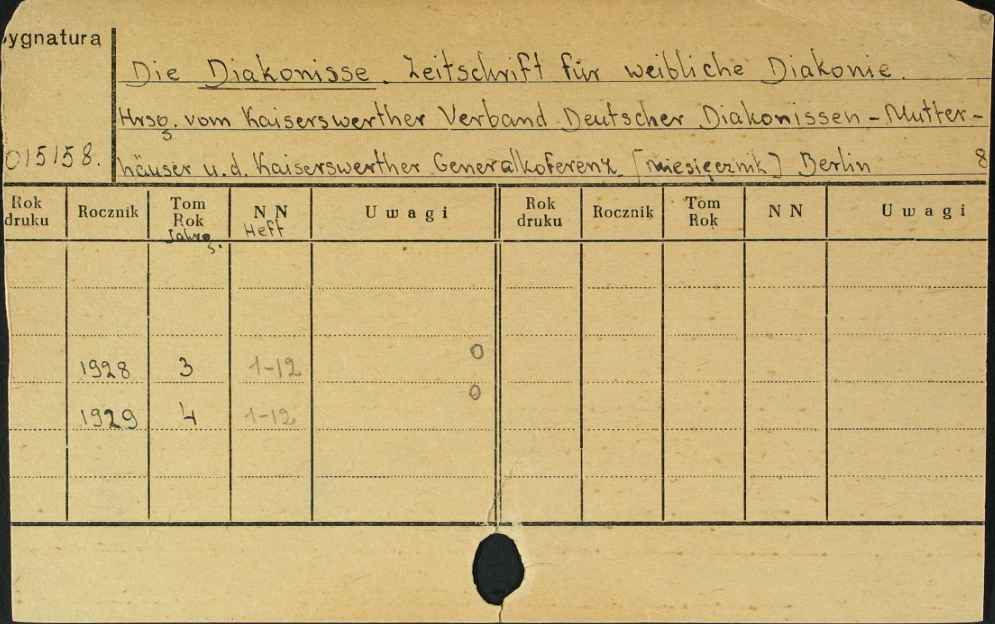 ygnatura
Die Diakonisse. Zeitschrift für weibliche Diakonie.
Hrsg. vom Kaiserswerther Verband Deutscher Diakonissen-Mutter-
015158.
häuser u.d. Kaiserswerther Generalkoferenz [miesięcznik] Berlin 8
Rok druku Rocznik Tom Rok NN Uwagi Rok druku Rocznik Tom Rok NN Uwagi
Jahrg. Heft
0
1928 3 1-12
0
1929 4 1-12